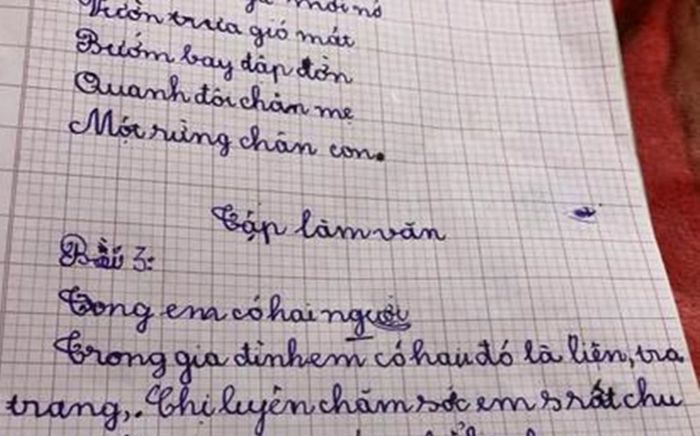 mới nở
Vườn trưa gió mát
Bướm bay dập dờn
Quanh đôi chân mẹ
Một rừng chân con.
Tập làm văn
Bài 3:
Tong em có hai người
Trong gia đình em có hai đó là liện, tra
trang,. Chị luyên chăm sóc em s rất chu